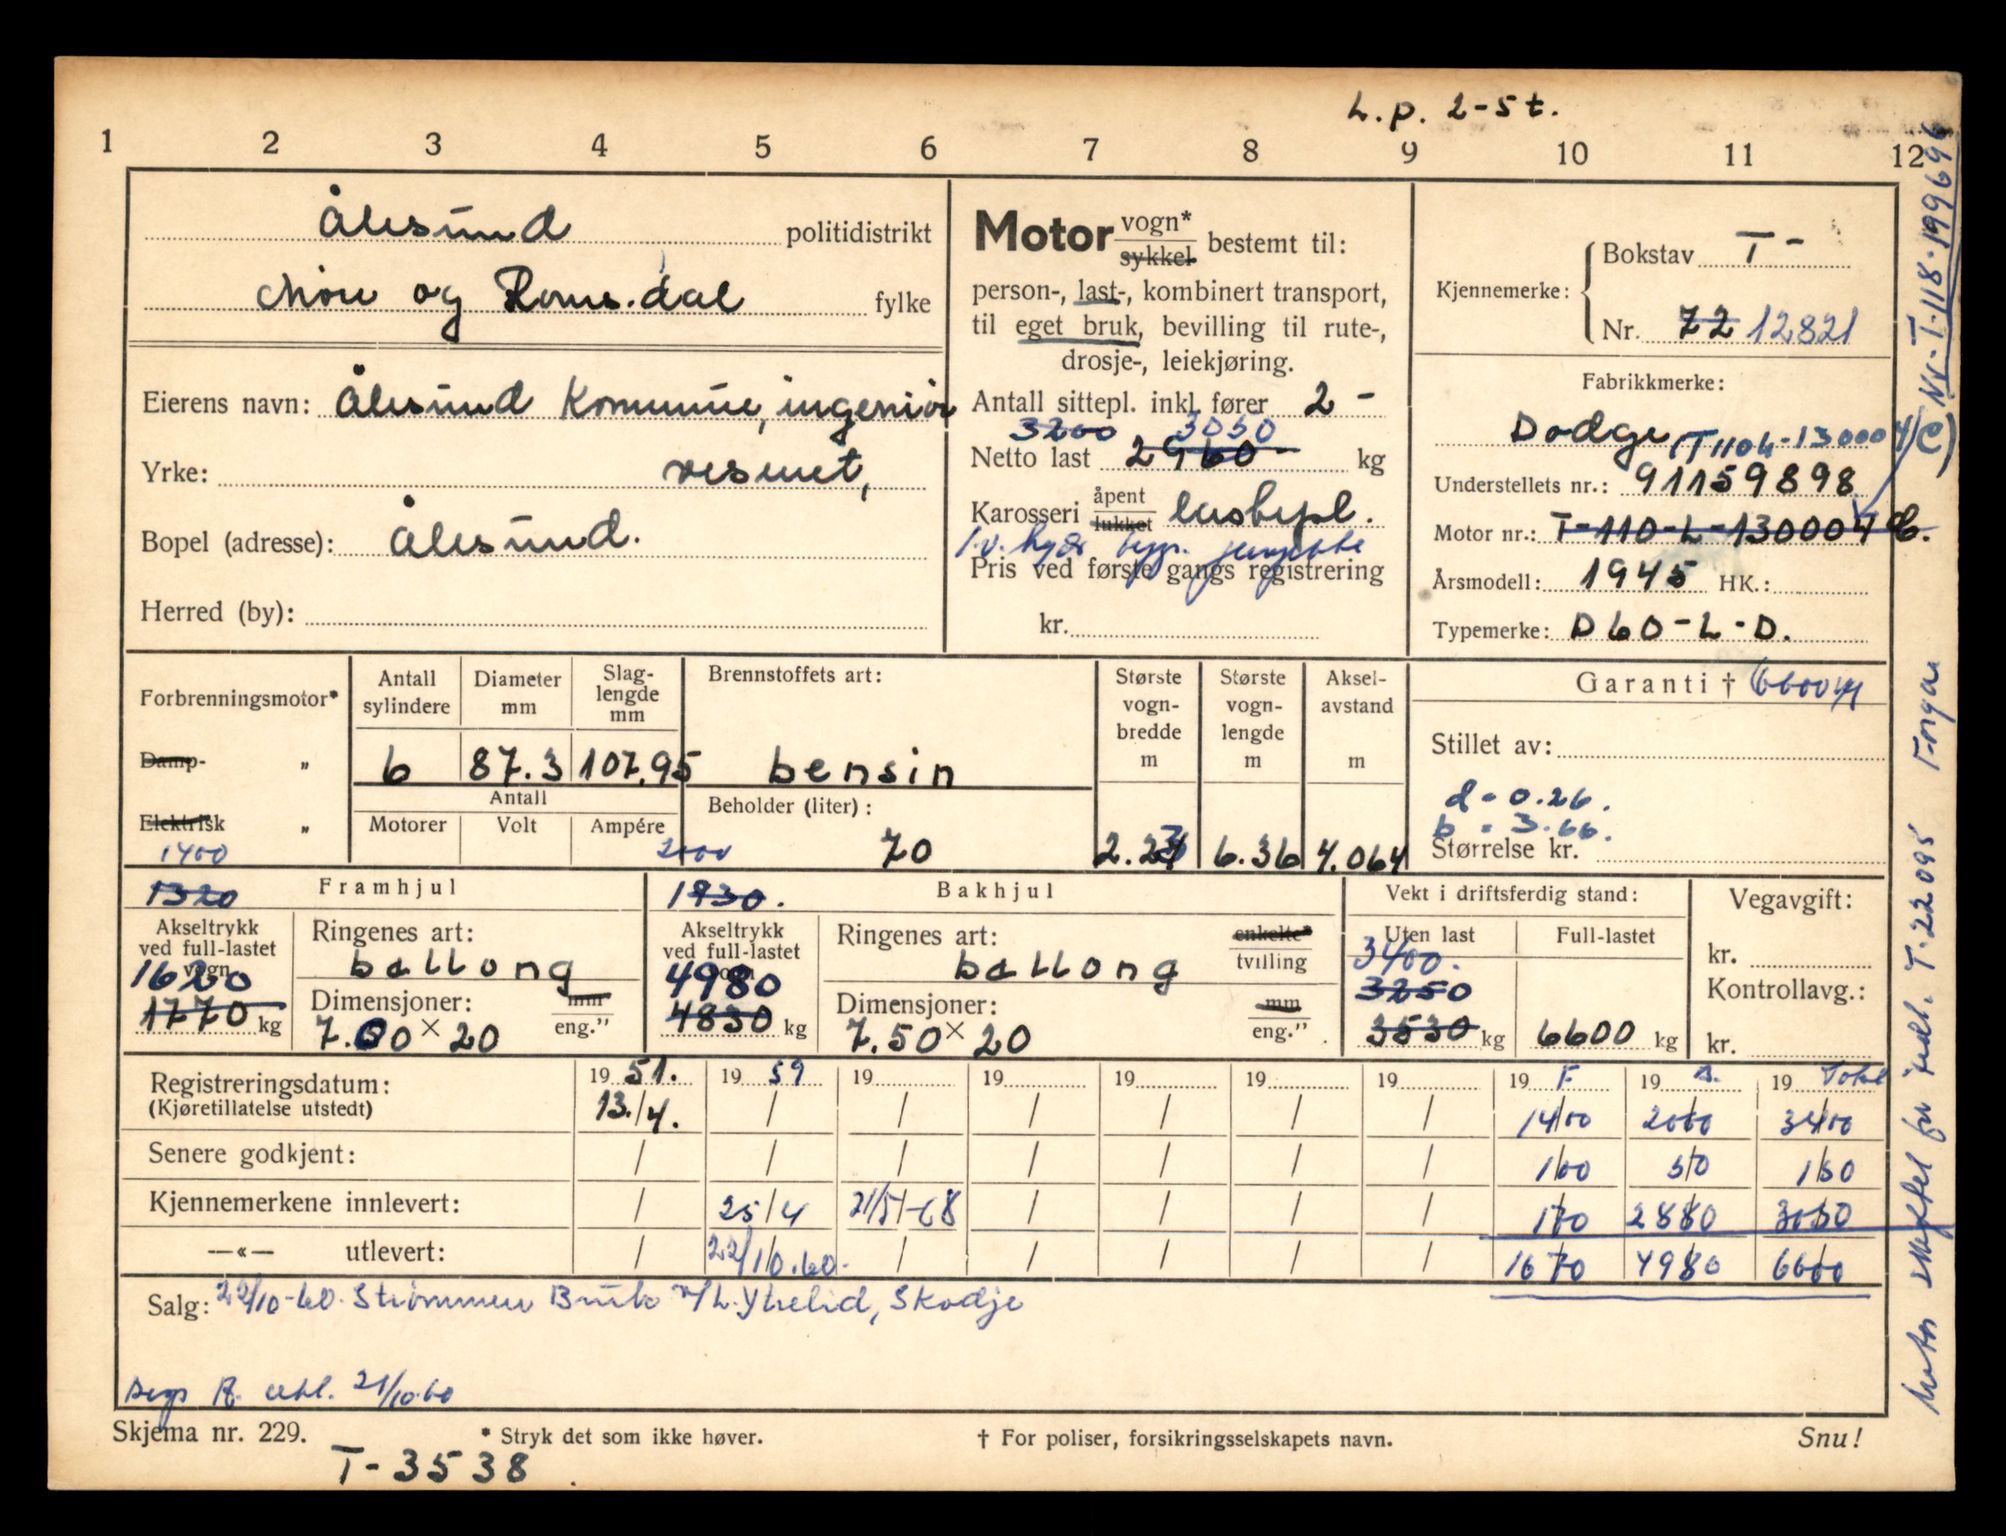 L.p. 2-5 t.
1 2 3 4 5 6 7 8 9 10 11 12
Ålesund politidistrikt
Møre og Romsdal fylke
Eierens navn: Ålesund Kommune, ingeniør
Yrke: vesenet,
Bopel (adresse): Ålesund.
Herred (by):
Motor vogn* sykkel bestemt til:
person-, last-, kombinert transport,
til eget bruk, bevilling til rute-,
drosje-, leiekjøring.
Antall sittepl. inkl. fører 2 -
3200 3050
Netto last 2960 - kg
Karosseri åpent lukket lastepl.
Pris ved første gangs registrering
kr.
Kjennemerke: Bokstav T -
Nr. 72 12821
Fabrikkmerke:
Dodge (T110L-13000 4/C)
Understellets nr.: 91159898
Motor nr.: T-110-L-130004 C.
Årsmodell: 1945 HK.:
Typemerke: D60-L-D.
Nr. T-118-199696
Forbrenningsmotor*
Damp- „
Elektrisk „
Antall sylindere
6
Diameter mm
87.3
Slaglengde mm
107.95
Antall
Motorer Volt Ampére
Brennstoffets art:
bensin
Beholder (liter):
70
Største vognbredde m
2.23
Største vognlengde m
6.36
Akselavstand m
4.064
Garanti † 6600
Stillet av:
d = 0.26.
b = 3.66.
Størrelse kr.
1400
1320 Framhjul
Akseltrykk ved full-lastet vogn
1620
1770 kg
Ringenes art:
ballong
Dimensjoner: mm
7.50 x 20 eng.”
2000
1930. Bakhjul
Akseltrykk ved full-lastet vogn
4980
4830 kg
Ringenes art: enkelte* tvilling
ballong
Dimensjoner: mm
7.50 x 20 eng.”
Vekt i driftsferdig stand:
Uten last Full-lastet
3400.
3250
3530 kg 6600 kg
Vegavgift:
kr.
Kontrollavg.:
kr.
Registreringsdatum: 19 51. 19 59 19 19 19 19 19 19 F. 19 B. 19 Total
(Kjøretillatelse utstedt) 13./4. / / / / / / 1400 2000 3400
Senere godkjent: / / / / / / / 100 50 150
Kjennemerkene innlevert: / 25/4 21/5-68 / / / / 170 2880 3050
—«— utlevert: / 22/10.60. / / / / / 1670 4980 6600
Salg: 22/10-60. Strømmen Bruk v/L. Ytrelid, Skodje
21/10.60
Skjema nr. 229. * Stryk det som ikke høver. † For poliser, forsikringsselskapets navn. Snu!
T-3538